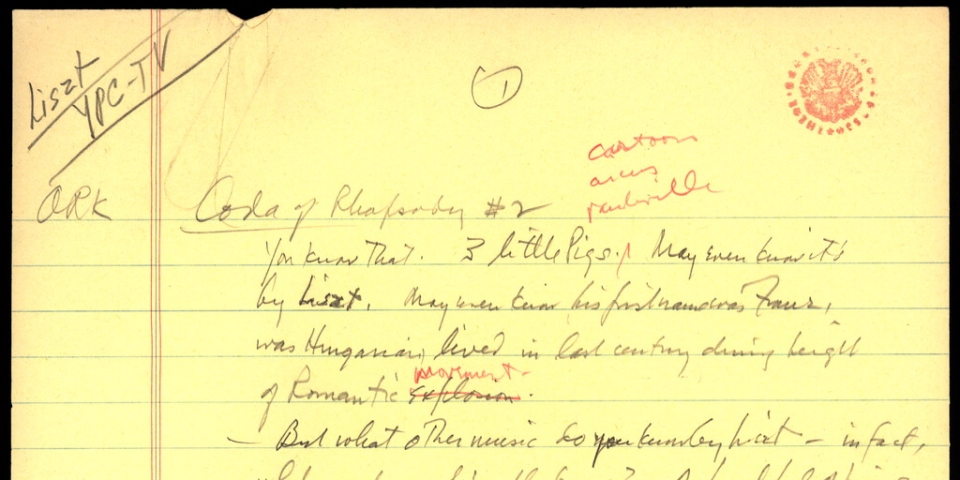 Liszt
YPC-TV
1
cartoon
circus
vaudeville
ORK
Coda of Rhapsody #2
You know that. 3 little Pigs. May even know it's
by Liszt. May even know his first name was Franz,
was Hungarian, lived in last century during height
movement
of Romantic explosion.
– But what other music do you know by Liszt – in fact,